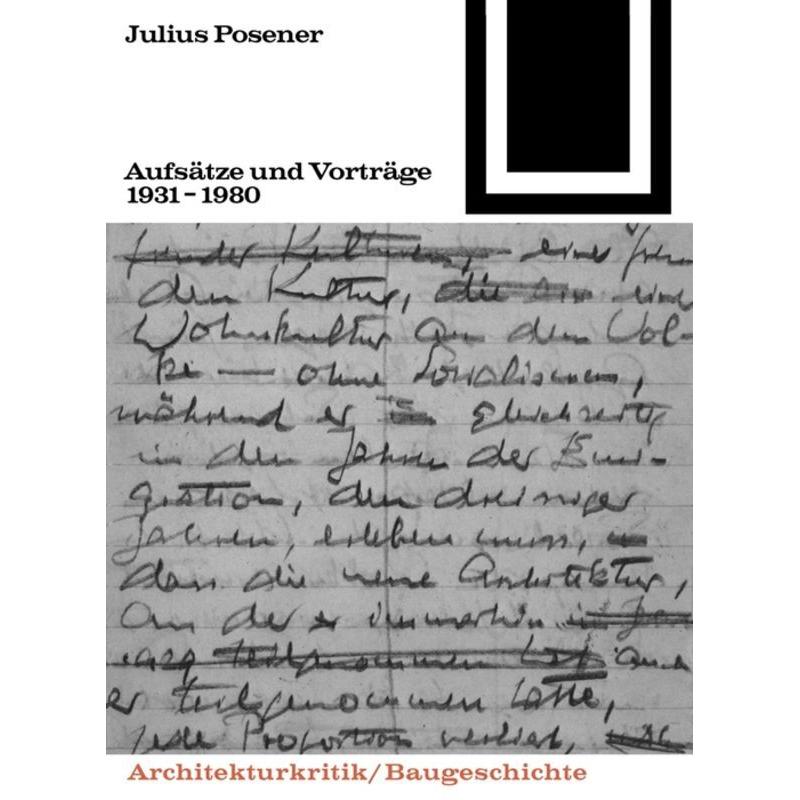 Julius Posener
Aufsätze und Vorträge
1931 – 1980
einer frem
den Kultur, die
Wohnkultur an dem Vol-
ke — ohne Sozialismus,
während er gleichzeitig
in den Jahren der Emi-
gration, den dreissiger
Jahren, erleben muss,
dass die neue Architektur,
an der immerhin
1929 teilgenommen hat auch
er teilgenommen hatte,
jede Proportion verliert,
Architekturkritik/Baugeschichte